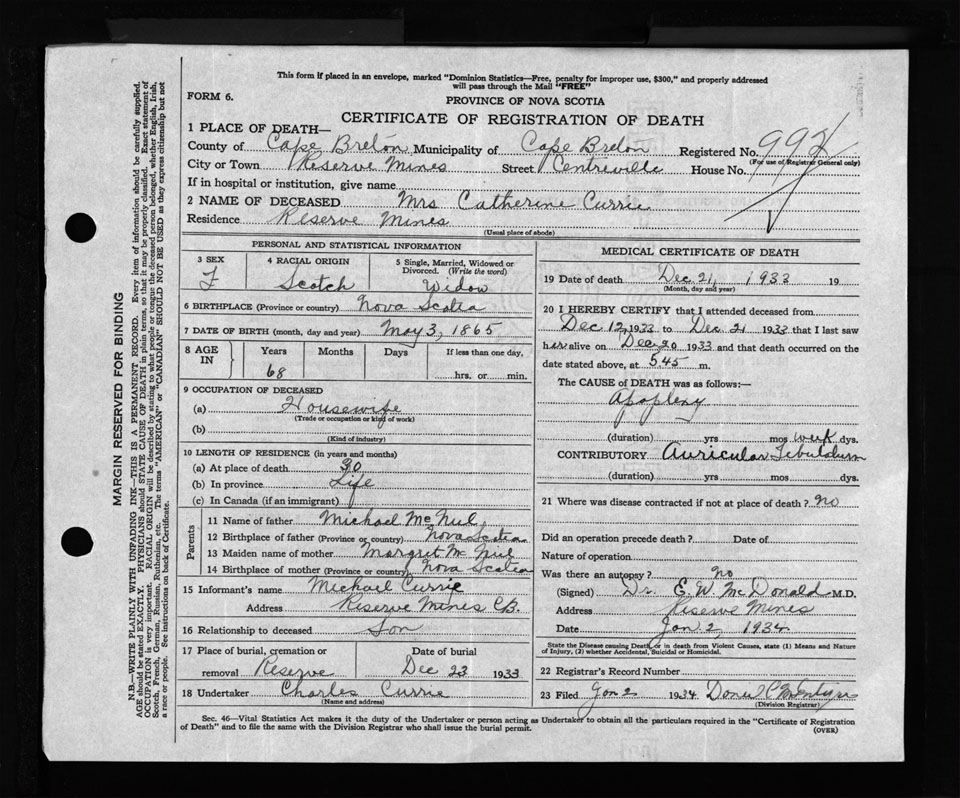 This form if placed in an envelope, marked "Dominion Statistics—Free, penalty for improper use, $300," and properly addressed
will pass through the Mail "FREE"
FORM 6.
PROVINCE OF NOVA SCOTIA
CERTIFICATE OF REGISTRATION OF DEATH
1 PLACE OF DEATH—
County of Cape Breton Municipality of Cape Breton Registered No. 992
(For use of Registrar General only)
City or Town Reserve Mines Street Centreville House No.
If in hospital or institution, give name
2 NAME OF DECEASED Mrs Catherine Currie
Residence Reserve Mines
(Usual place of abode)
PERSONAL AND STATISTICAL INFORMATION
3 SEX F
4 RACIAL ORIGIN Scotch
5 Single, Married, Widowed or Divorced. (Write the word) Widow
6 BIRTHPLACE (Province or country) Nova Scotia
7 DATE OF BIRTH (month, day and year) May 3, 1865
8 AGE IN Years 68 Months Days If less than one day, hrs. or min.
9 OCCUPATION OF DECEASED
(a) Housewife
(Trade or occupation or kind of work)
(b)
(Kind of industry)
10 LENGTH OF RESIDENCE (in years and months)
(a) At place of death 30
(b) In province Life
(c) In Canada (if an immigrant)
Parents
11 Name of father Michael McNul
12 Birthplace of father (Province or country) Nova Scotia
13 Maiden name of mother Margret McNul
14 Birthplace of mother (Province or country) Nova Scotia
15 Informant's name Michael Currie
Address Reserve Mines CB.
16 Relationship to deceased Son
17 Place of burial, cremation or removal Reserve
Date of burial Dec 23 1933
18 Undertaker Charles Currie
(Name and address)
MEDICAL CERTIFICATE OF DEATH
19 Date of death Dec. 21, 1933 19
(Month, day and year)
20 I HEREBY CERTIFY that I attended deceased from
Dec 12 1933 to Dec 21 1933 that I last saw
her alive on Dec 20 1933 and that death occurred on the
date stated above, at 5.45 m.
The CAUSE of DEATH was as follows:—
Apoplexy
(duration) yrs mos week dys.
CONTRIBUTORY Auricular
(duration) yrs mos dys.
21 Where was disease contracted if not at place of death? no
Did an operation precede death? Date of
Nature of operation
Was there an autopsy? no
(Signed) Dr. E. W. McDonald M.D.
Address Reserve Mines
Date Jan 2, 1934
State the Disease causing Death, or in death from Violent Causes, state (1) Means and Nature
of Injury, (2) whether Accidental, Suicidal or Homicidal.
22 Registrar's Record Number
23 Filed Jan 2 1934
(Division Registrar)
Sec. 46—Vital Statistics Act makes it the duty of the Undertaker or person acting as Undertaker to obtain all the particulars required in the "Certificate of Registration
of Death" and to file the same with the Division Registrar who shall issue the burial permit.
(OVER)
MARGIN RESERVED FOR BINDING
N.B.—WRITE PLAINLY WITH UNFADING INK—THIS IS A PERMANENT RECORD. Every item of information should be carefully supplied.
AGE should be stated EXACTLY. PHYSICIANS should STATE CAUSE OF DEATH in plain terms, so that it may be properly classified. Exact statement of
OCCUPATION is very important. RACIAL ORIGIN will be described by stating to what people or tongue the deceased person belonged, whether English, Irish,
Scotch, French, German, Russian, Ruthenian, etc. The terms "AMERICAN" or "CANADIAN" SHOULD NOT BE USED as they express citizenship but not
a race or people. See instructions on back of Certificate.